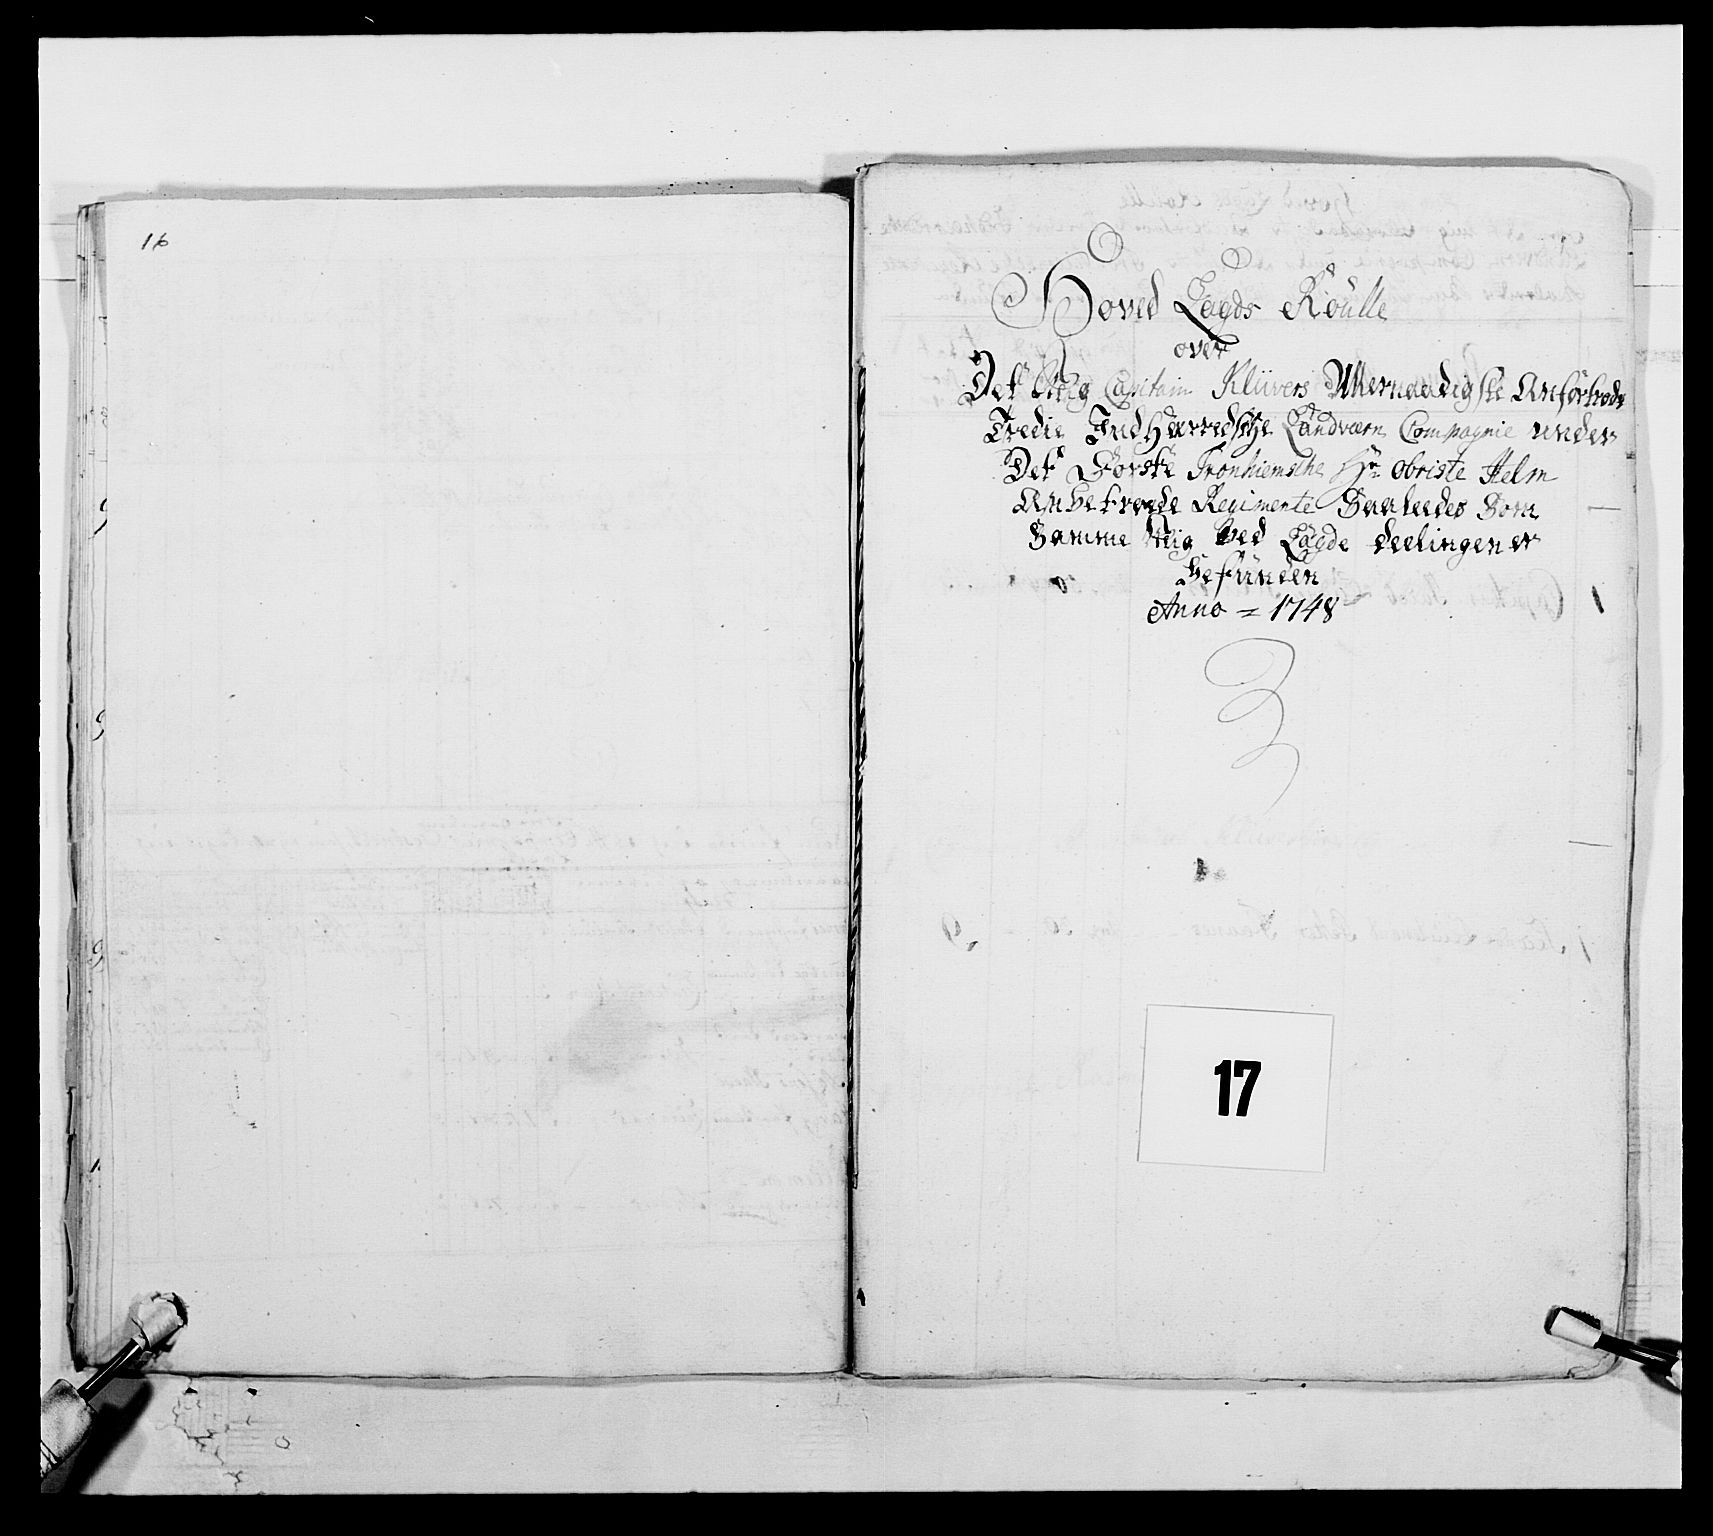 16
Hoved Lægds Roulle
over
Det Mig Capitain Klüvers Allernaadigste Anfortrode
Tredie IndHerredsche Landværn Compagnie under
Det Førske Tronhiemsche Hr Obriste Helm
Anbetroede Regimente Saaleedes Som
Samme Mig Ved Lægde deelingen er
befunden
Anno = 1748
17